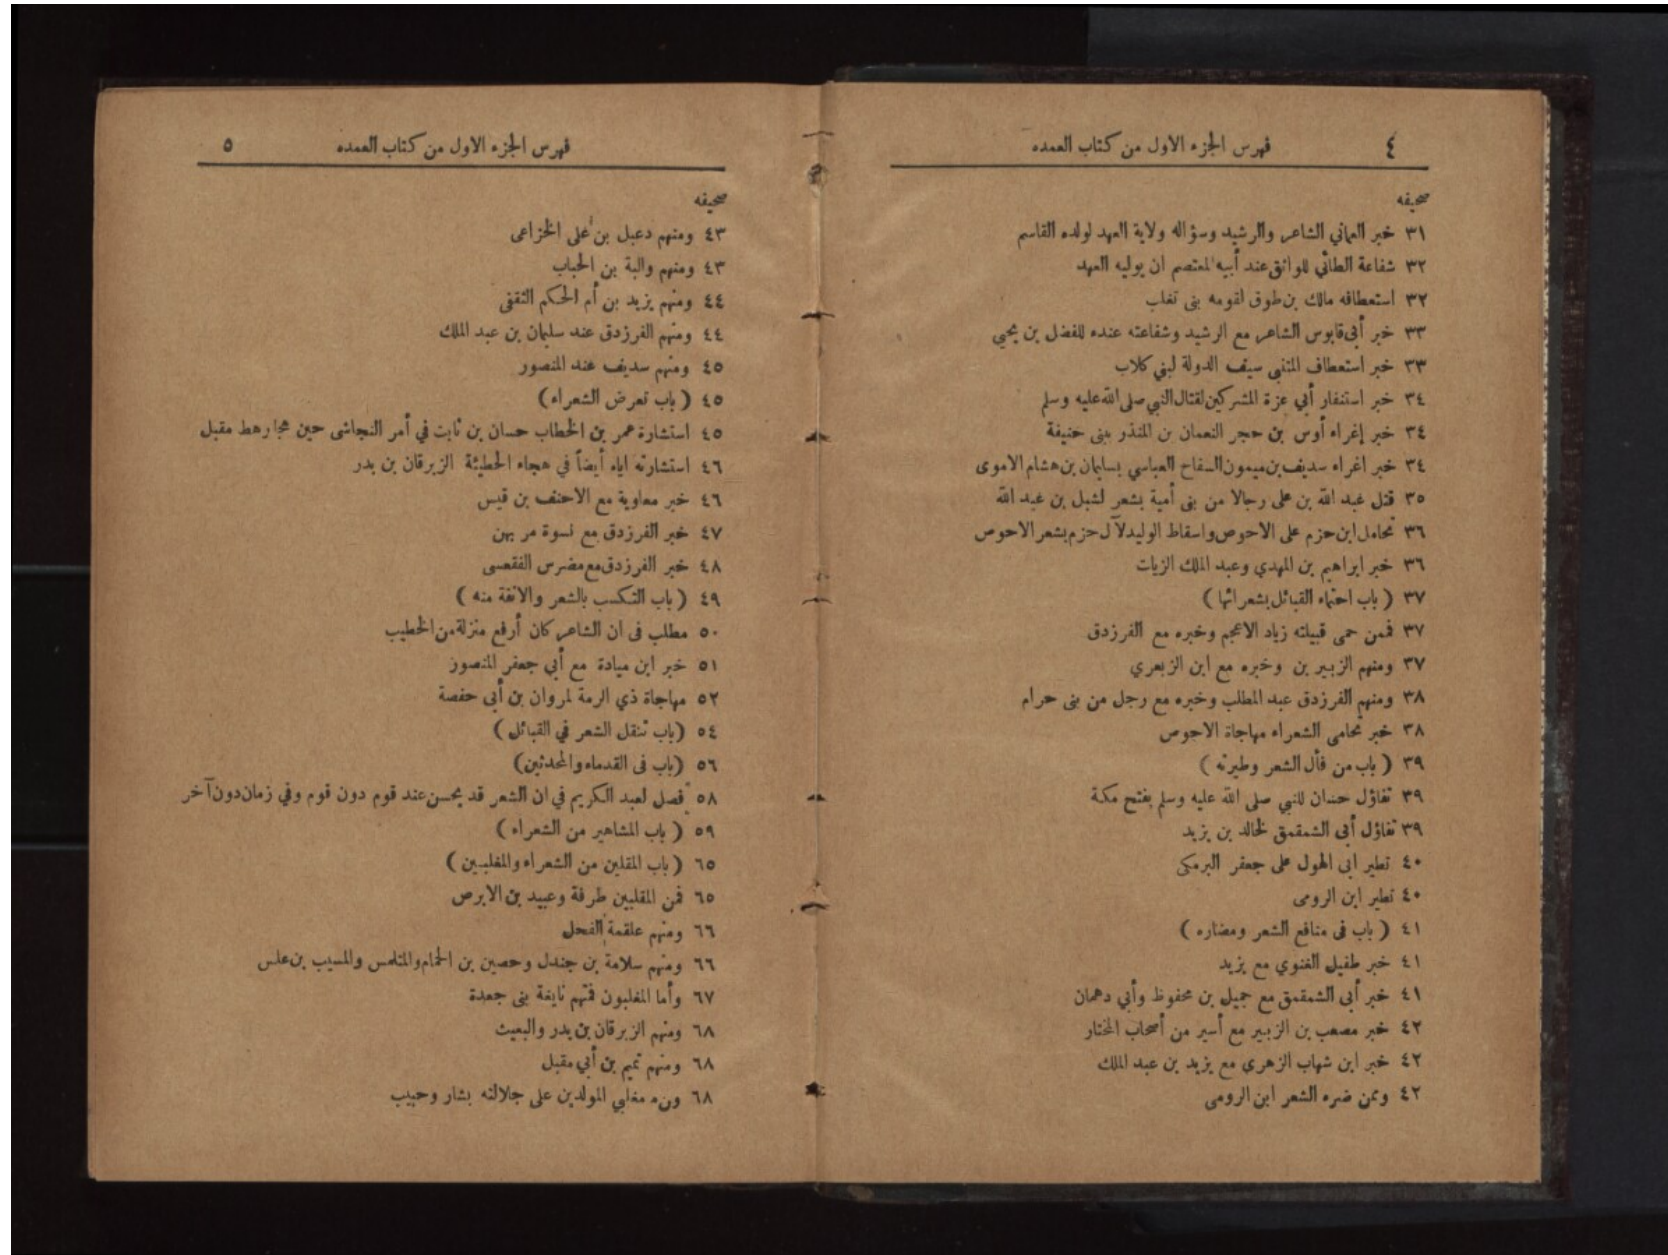 ٤ فهرس الجزء الاول من كتاب العمده
صحيفه
٣١ خبر العماني الشاعر والرشيد وسؤاله ولاية العهد لولده القاسم
٣٢ شفاعة الطائي للواثق عند أبيه المعتصم ان يوليه العهد
٣٢ استعطافه مالك بن طوق لقومه بنى تغلب
٣٣ خبر أبى قابوس الشاعر مع الرشيد وشفاعته عنده للفضل بن يحيي
٣٣ خبر استعطاف المتنبى سيف الدولة لبني كلاب
٣٤ خبر استنفار أبي عزة المشركين لقتال النبي صلى الله عليه وسلم
٣٤ خبر إغراء أوس بن حجر النعمان بن المنذر ببنى حنيفة
٣٤ خبر اغراء سديف بن ميمون السفاح العباسي بسليمان بن هشام الاموى
٣٥ قتل عبد الله بن على رجالا من بنى أمية بشعر لشبل بن عبد الله
٣٦ تحامل ابن حزم على الاحوص واسقاط الوليد لآل حزم بشعر الاحوص
٣٦ خبر ابراهيم بن المهدي وعبد الملك الزيات
٣٧ ( باب احتماء القبائل بشعرائها )
٣٧ فممن حمى قبيلته زياد الاعجم وخبره مع الفرزدق
٣٧ ومنهم الزبير بن وخبره مع ابن الزبعري
٣٨ ومنهم الفرزدق عبد المطلب وخبره مع رجل من بنى حرام
٣٨ خبر تحامى الشعراء مهاجاة الاحوص
٣٩ ( باب من فأل الشعر وطيرته )
٣٩ تفاؤل حسان للنبي صلى الله عليه وسلم بفتح مكة
٣٩ تفاؤل أبى الشمقمق لخالد بن يزيد
٤٠ تطير ابى الهول على جعفر البرمكى
٤٠ تطير ابن الرومى
٤١ ( باب فى منافع الشعر ومضاره )
٤١ خبر طفيل الغنوي مع يزيد
٤١ خبر أبى الشمقمق مع جميل بن محفوظ وأبي دهمان
٤٢ خبر مصعب بن الزبير مع أسير من أصحاب المختار
٤٢ خبر ابن شهاب الزهري مع يزيد بن عبد الملك
٤٢ وممن ضره الشعر ابن الرومى
فهرس الجزء الاول من كتاب العمده ٥
صحيفه
٤٣ ومنهم دعبل بن على الخزاعى
٤٣ ومنهم والبة بن الحباب
٤٤ ومنهم يزيد بن أم الحكم الثقفى
٤٤ ومنهم الفرزدق عند سليمان بن عبد الملك
٤٥ ومنهم سديف عند المنصور
٤٥ ( باب تعرض الشعراء )
٤٥ استشارة عمر بن الخطاب حسان بن ثابت في أمر النجاشى حين هجا رهط مقبل
٤٦ استشارته اياه أيضاً في هجاء الحطيئة الزبرقان بن بدر
٤٦ خبر معاوية مع الاحنف بن قيس
٤٧ خبر الفرزدق مع نسوة مر بهن
٤٨ خبر الفرزدق مع مضرس الفقعسى
٤٩ ( باب التكسب بالشعر والانفة منه )
٥٠ مطلب فى ان الشاعر كان أرفع منزلة من الخطيب
٥١ خبر ابن ميادة مع أبي جعفر المنصور
٥٢ مهاجاة ذي الرمة لمروان بن أبى حفصة
٥٤ (باب تنقل الشعر في القبائل )
٥٦ (باب فى القدماء والمحدثين)
٥٨ فصل لعبد الكريم في ان الشعر قد يحسن عند قوم دون قوم وفي زمان دون آخر
٥٩ ( باب المشاهير من الشعراء )
٦٥ ( باب المقلين من الشعراء والمغلبين )
٦٥ فمن المقلين طرفة وعبيد بن الابرص
٦٦ ومنهم علقمة الفحل
٦٦ ومنهم سلامة بن جندل وحصين بن الحمام والمتلمس والمسيب بن علس
٦٧ وأما المغلبون فمنهم نابغة بنى جعدة
٦٨ ومنهم الزبرقان بن بدر والبعيث
٦٨ ومنهم تميم بن أبي مقبل
٦٨ ومن مغلبي المولدين على جلالته بشار وحبيب